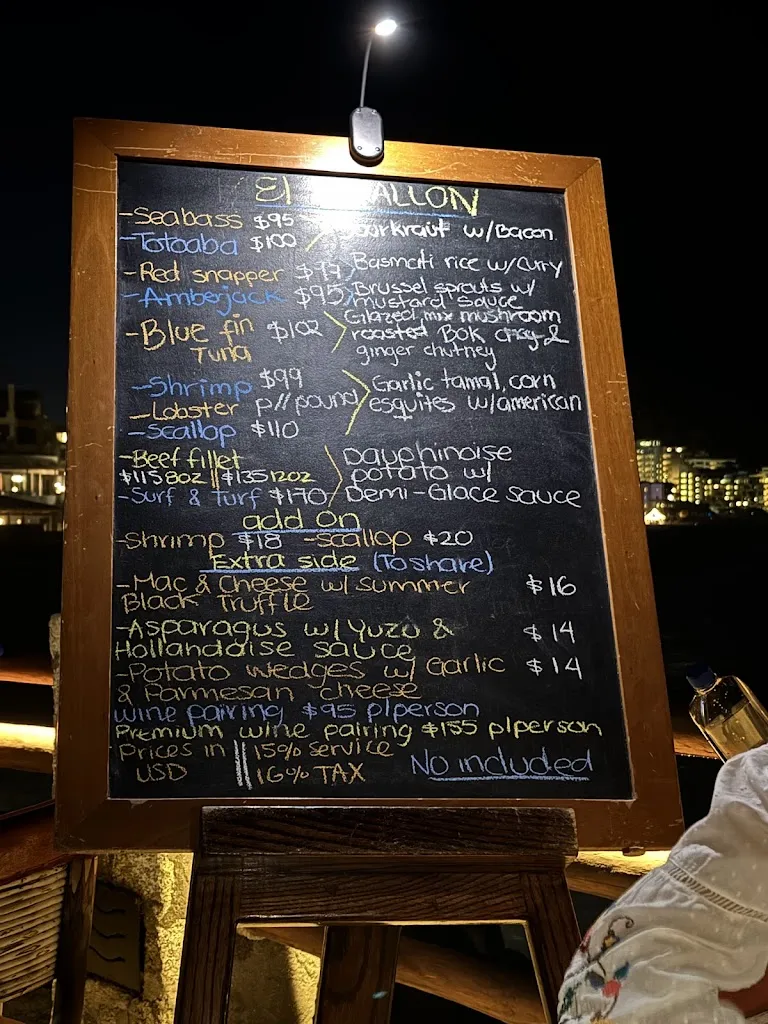 El ALLON
-Seabass $95
-Totoaba $100
Sourkraut w/Bacon
-Red snapper $99
Basmati rice w/curry
-Amberjack $95
Brussel sprouts w/
mustard sauce
-Blue fin $102
Tuna
Glazed mix mushroom
roasted Bok choy &
ginger chutney
-Shrimp $99
-Lobster p//pound
-Scallop $110
Garlic tamal, corn
esquites w/american
-Beef fillet
$115 8oz || $135 12oz
-Surf & Turf $170
Dauphinoise
potato w/
Demi-Glace sauce
add on
-Shrimp $18 -Scallop $20
Extra side (To share)
-Mac & Cheese w/ summer $16
Black Truffle
-Asparagus w/ Yuzu & $14
Hollandaise sauce
-Potato wedges w/ Garlic $14
& Parmesan cheese
wine pairing $95 p/person
Premium wine pairing $155 p/person
Prices in || 15% service
USD || 16% TAX No included